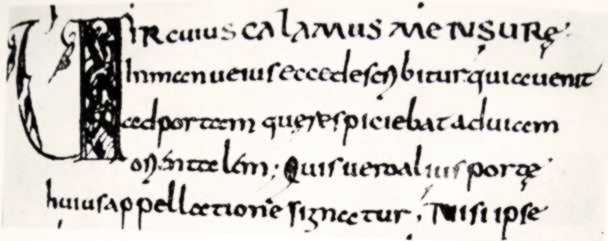 UIR cuius calamus mensurę
In manu eius ecce describitur quia uenit
ad portam quę respiciebat ad uiam
orientalem; Quis uero alius portę
huius appellatione signatur, Nisi ipse